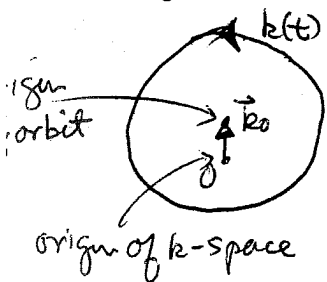 k(t)
igin
orbit
k⃗₀
0
origin of k-space